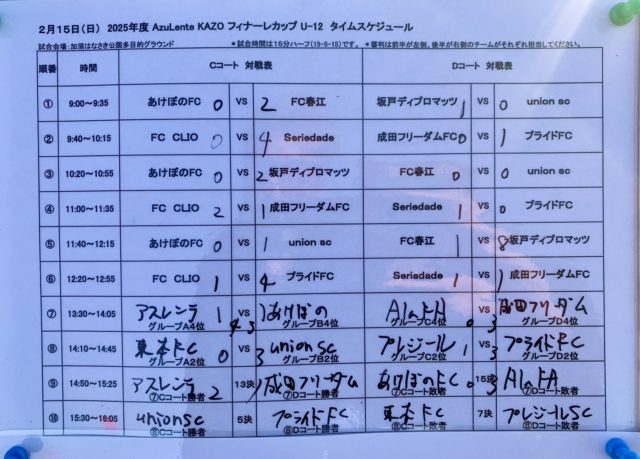 2月15日(日) 2025年度 AzuLente KAZO フィナーレカップ U-12 タイムスケジュール
試合会場:加須はなさき公園多目的グラウンド *試合時間は15分ハーフ(15-5-15)です。 *審判は前半が左側、後半が右側のチームがそれぞれ担当してください。
順番 時間 Cコート 対戦表 Dコート 対戦表
① 9:00～9:35 あけぼのFC 0 VS 2 FC春江 坂戸ディプロマッツ 1 VS 0 union sc
② 9:40～10:15 FC CLIO 0 VS 4 Seriedade 成田フリーダムFC 0 VS 1 プライドFC
③ 10:20～10:55 あけぼのFC 0 VS 2 坂戸ディプロマッツ FC春江 0 VS 0 union sc
④ 11:00～11:35 FC CLIO 2 VS 1 成田フリーダムFC Seriedade 1 VS 0 プライドFC
⑤ 11:40～12:15 あけぼのFC 0 VS 1 union sc FC春江 1 VS 8 坂戸ディプロマッツ
⑥ 12:20～12:55 FC CLIO 1 VS 4 プライドFC Seriedade 1 VS 1 成田フリーダムFC
⑦ 13:30～14:05 アスレンテ 1 VS 1 あけぼの AlaFA VS 成田フリーダム
グループA4位 4 3 グループB4位 グループC4位 0 3 グループD4位
⑧ 14:10～14:45 東本FC 0 VS 3 union sc プレジール 1 VS 3 プライドFC
グループA2位 グループB2位 グループC2位 グループD2位
⑨ 14:50～15:25 アスレンテ 2 13決 1 成田フリーダム あけぼのFC 0 15決 3 AlaFA
⑦Cコート勝者 ⑦Dコート勝者 ⑦Cコート敗者 ⑦Dコート敗者
⑩ 15:30～16:05 union sc 5決 プライドFC 東本FC 7決 プレジールSC
⑧Cコート勝者 ⑧Dコート勝者 ⑧Cコート敗者 ⑧Dコート敗者